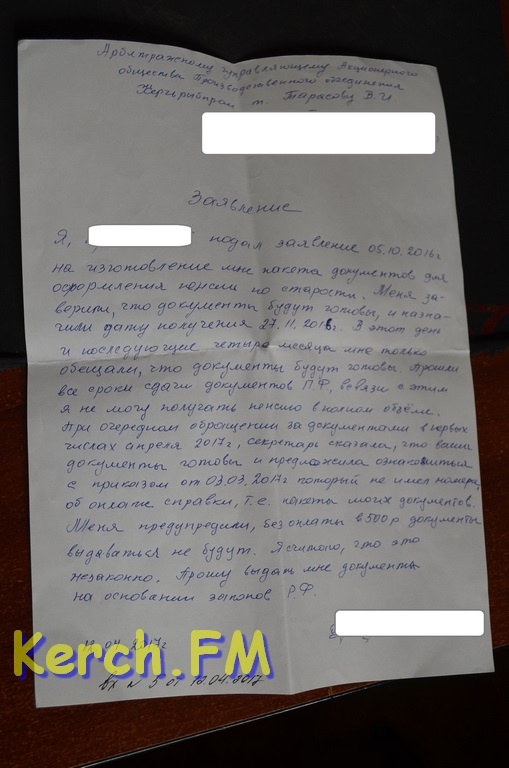 Арбитражному управляющему Акционерного
общества Производственного объединения
Керчьрыбпром т. Тарасову В.И
Заявление
Я, подал заявление 05.10.2016г
на изготовление мне пакета документов для
оформления пенсии по старости. Меня за-
верили, что документы будут готовы, и назна-
чили дату получения 27.11.2016г. В этот день
и последующие четыре месяца мне только
обещали, что документы будут готовы. Прошли
все сроки сдачи документов П.Ф, в связи с этим
я не могу получать пенсию в полном объёме.
При очередном обращении за документами в первых
числах апреля 2017г, секретарь сказала, что ваши
документы готовы и предложила ознакомиться
с приказом от 03.03.2017г который не имел номера,
об оплате справки, т.е. пакеты моих документов.
Меня предупредили, без оплаты в 500р документы
выдаваться не будут. Я считаю, что это
незаконно. Прошу выдать мне документы
на основании законов Р.Ф.
04 2017г
Kerch.FM
вх № 5 от 12.04.2017